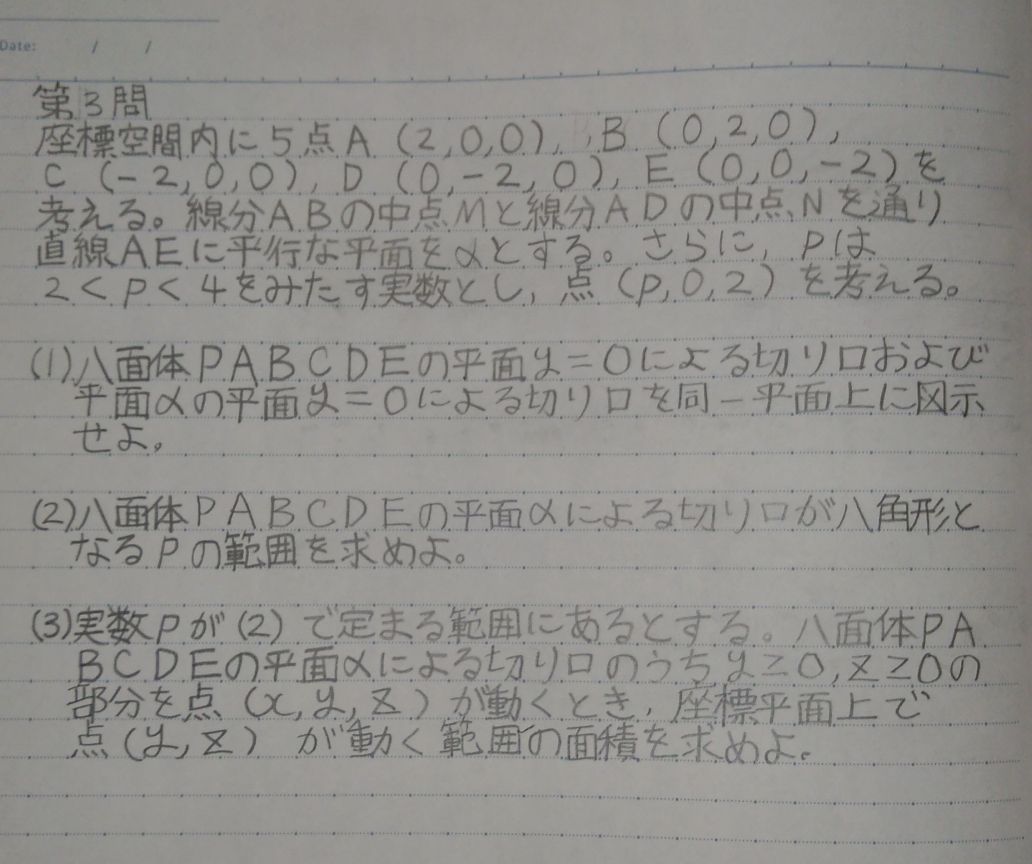 Date: / /
第3問
座標空間内に5点A (2,0,0), B (0,2,0),
C (-2,0,0), D (0,-2,0), E (0,0,-2) を
考える。線分ABの中点Mと線分ADの中点Nを通り
直線AEに平行な平面をαとする。さらに, pは
2<p<4をみたす実数とし, 点 (p,0,2) を考える。
(1)八面体PABCDEの平面y=0による切り口および
平面αの平面y=0による切り口を同一平面上に図示
せよ。
(2)八面体PABCDEの平面αによる切り口が八角形と
なるpの範囲を求めよ。
(3)実数pが(2)で定まる範囲にあるとする。八面体PA
BCDEの平面αによる切り口のうちy≥0,z≥0の
部分を点 (x,y,z) が動くとき, 座標平面上で
点(y,z) が動く範囲の面積を求めよ。